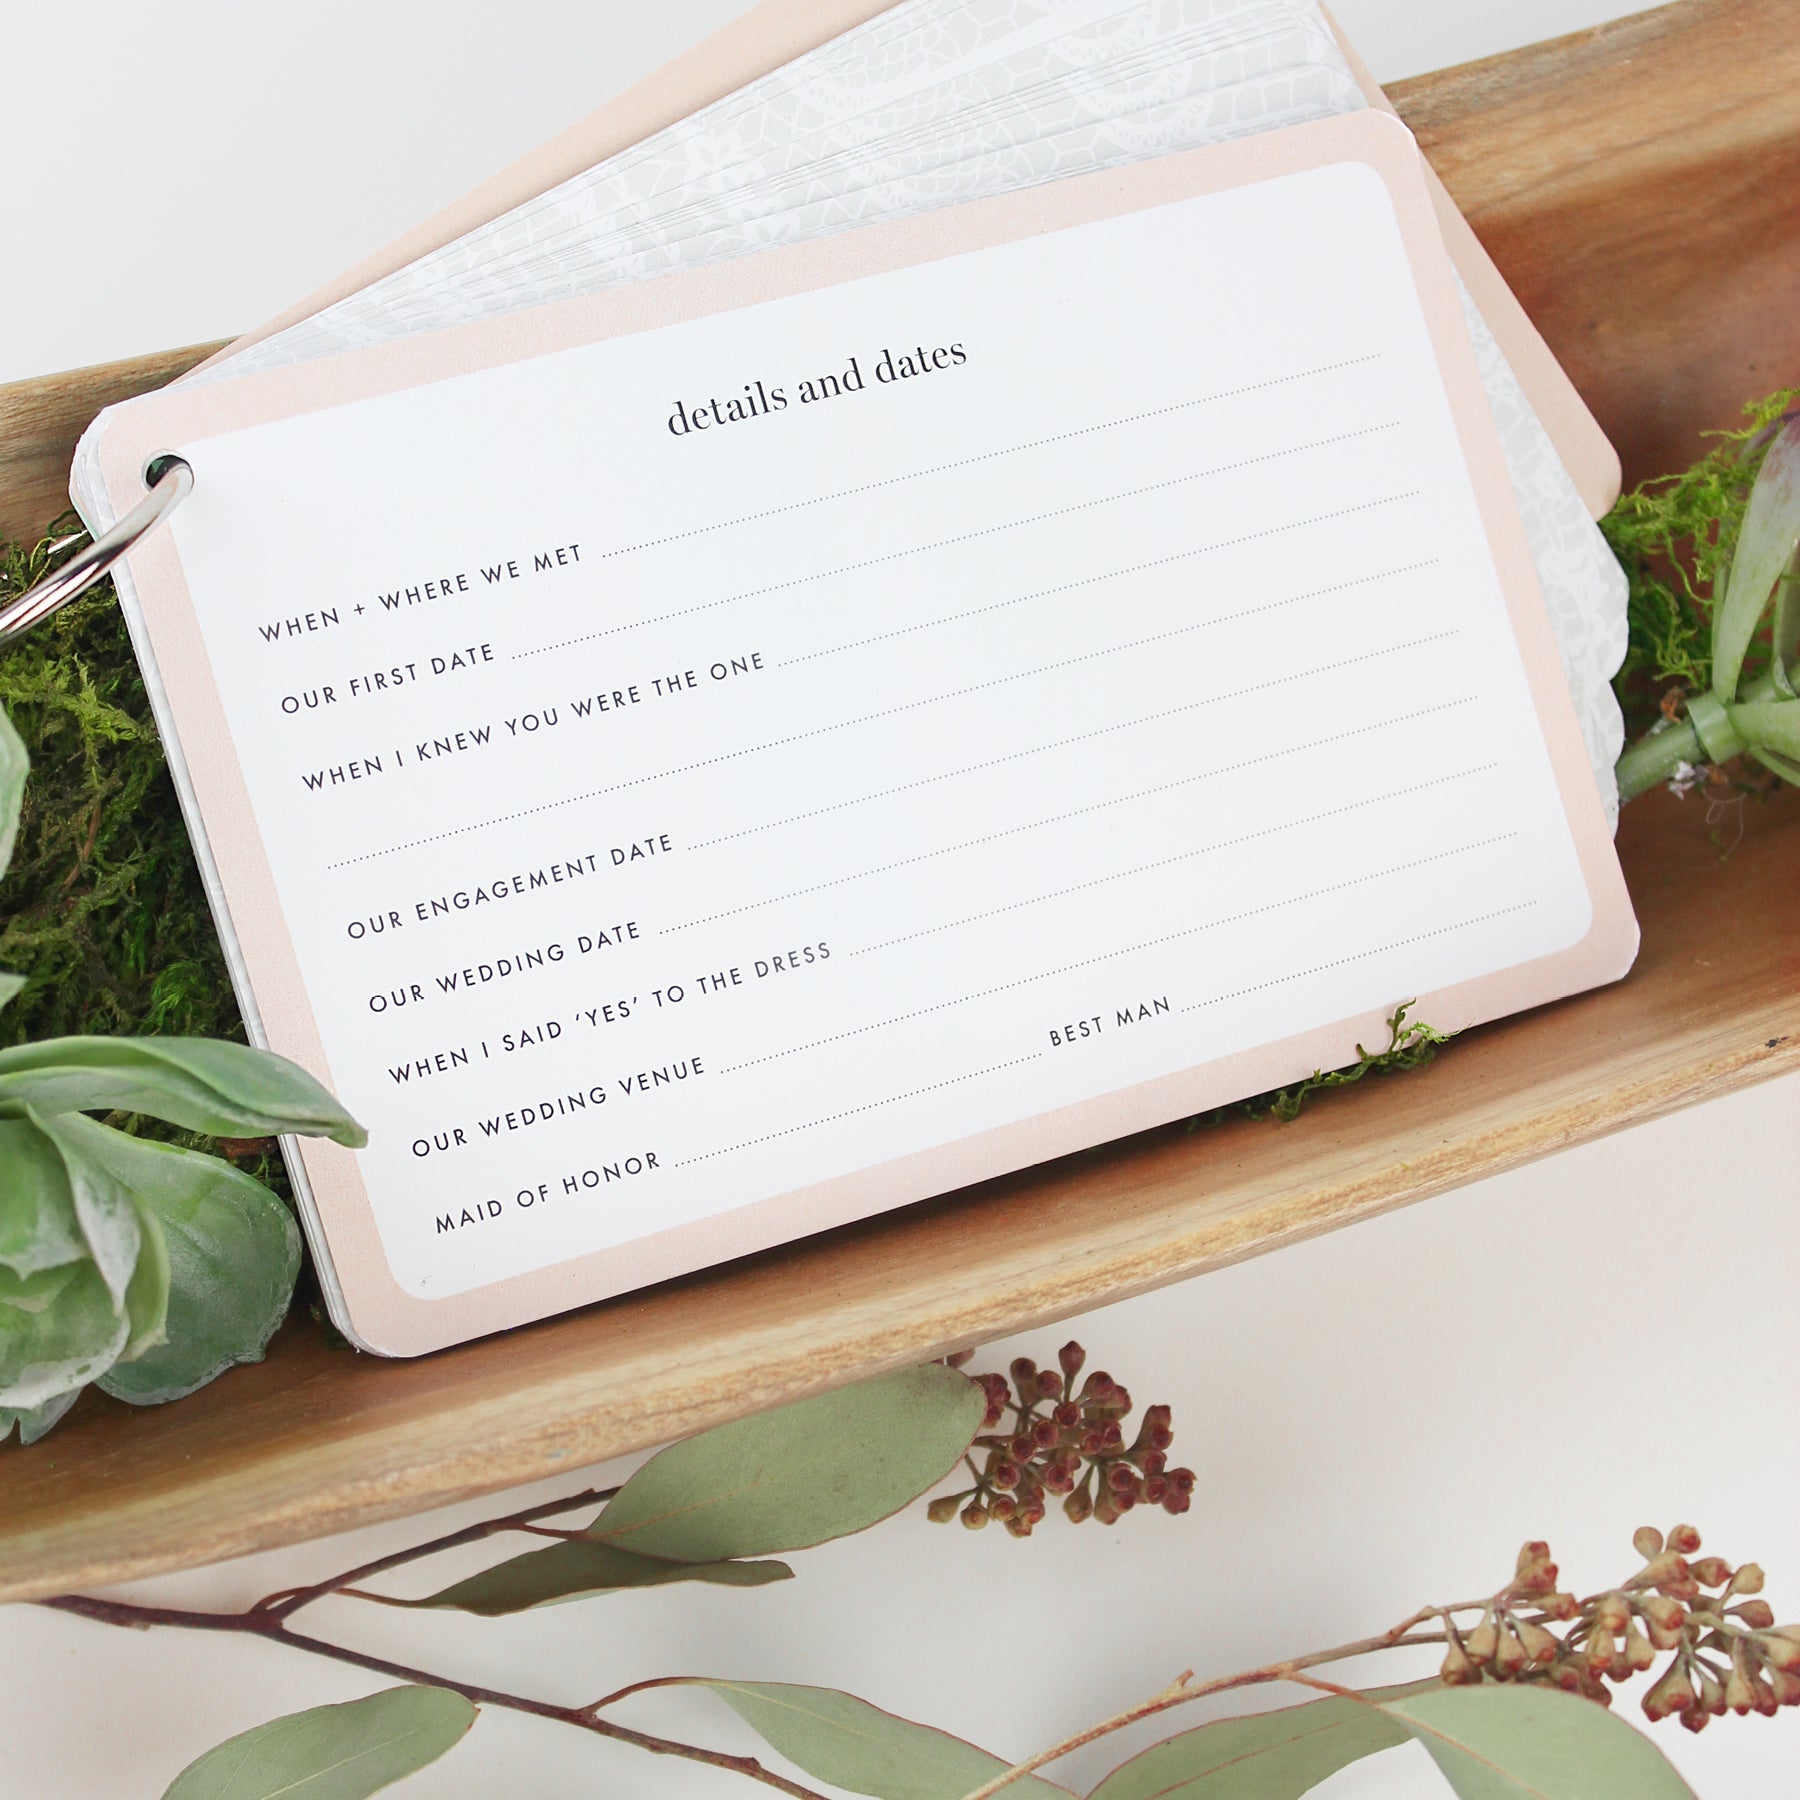 details and dates
WHEN + WHERE WE MET
OUR FIRST DATE
WHEN I KNEW YOU WERE THE ONE
OUR ENGAGEMENT DATE
OUR WEDDING DATE
WHEN I SAID ‘YES’ TO THE DRESS
OUR WEDDING VENUE
MAID OF HONOR BEST MAN